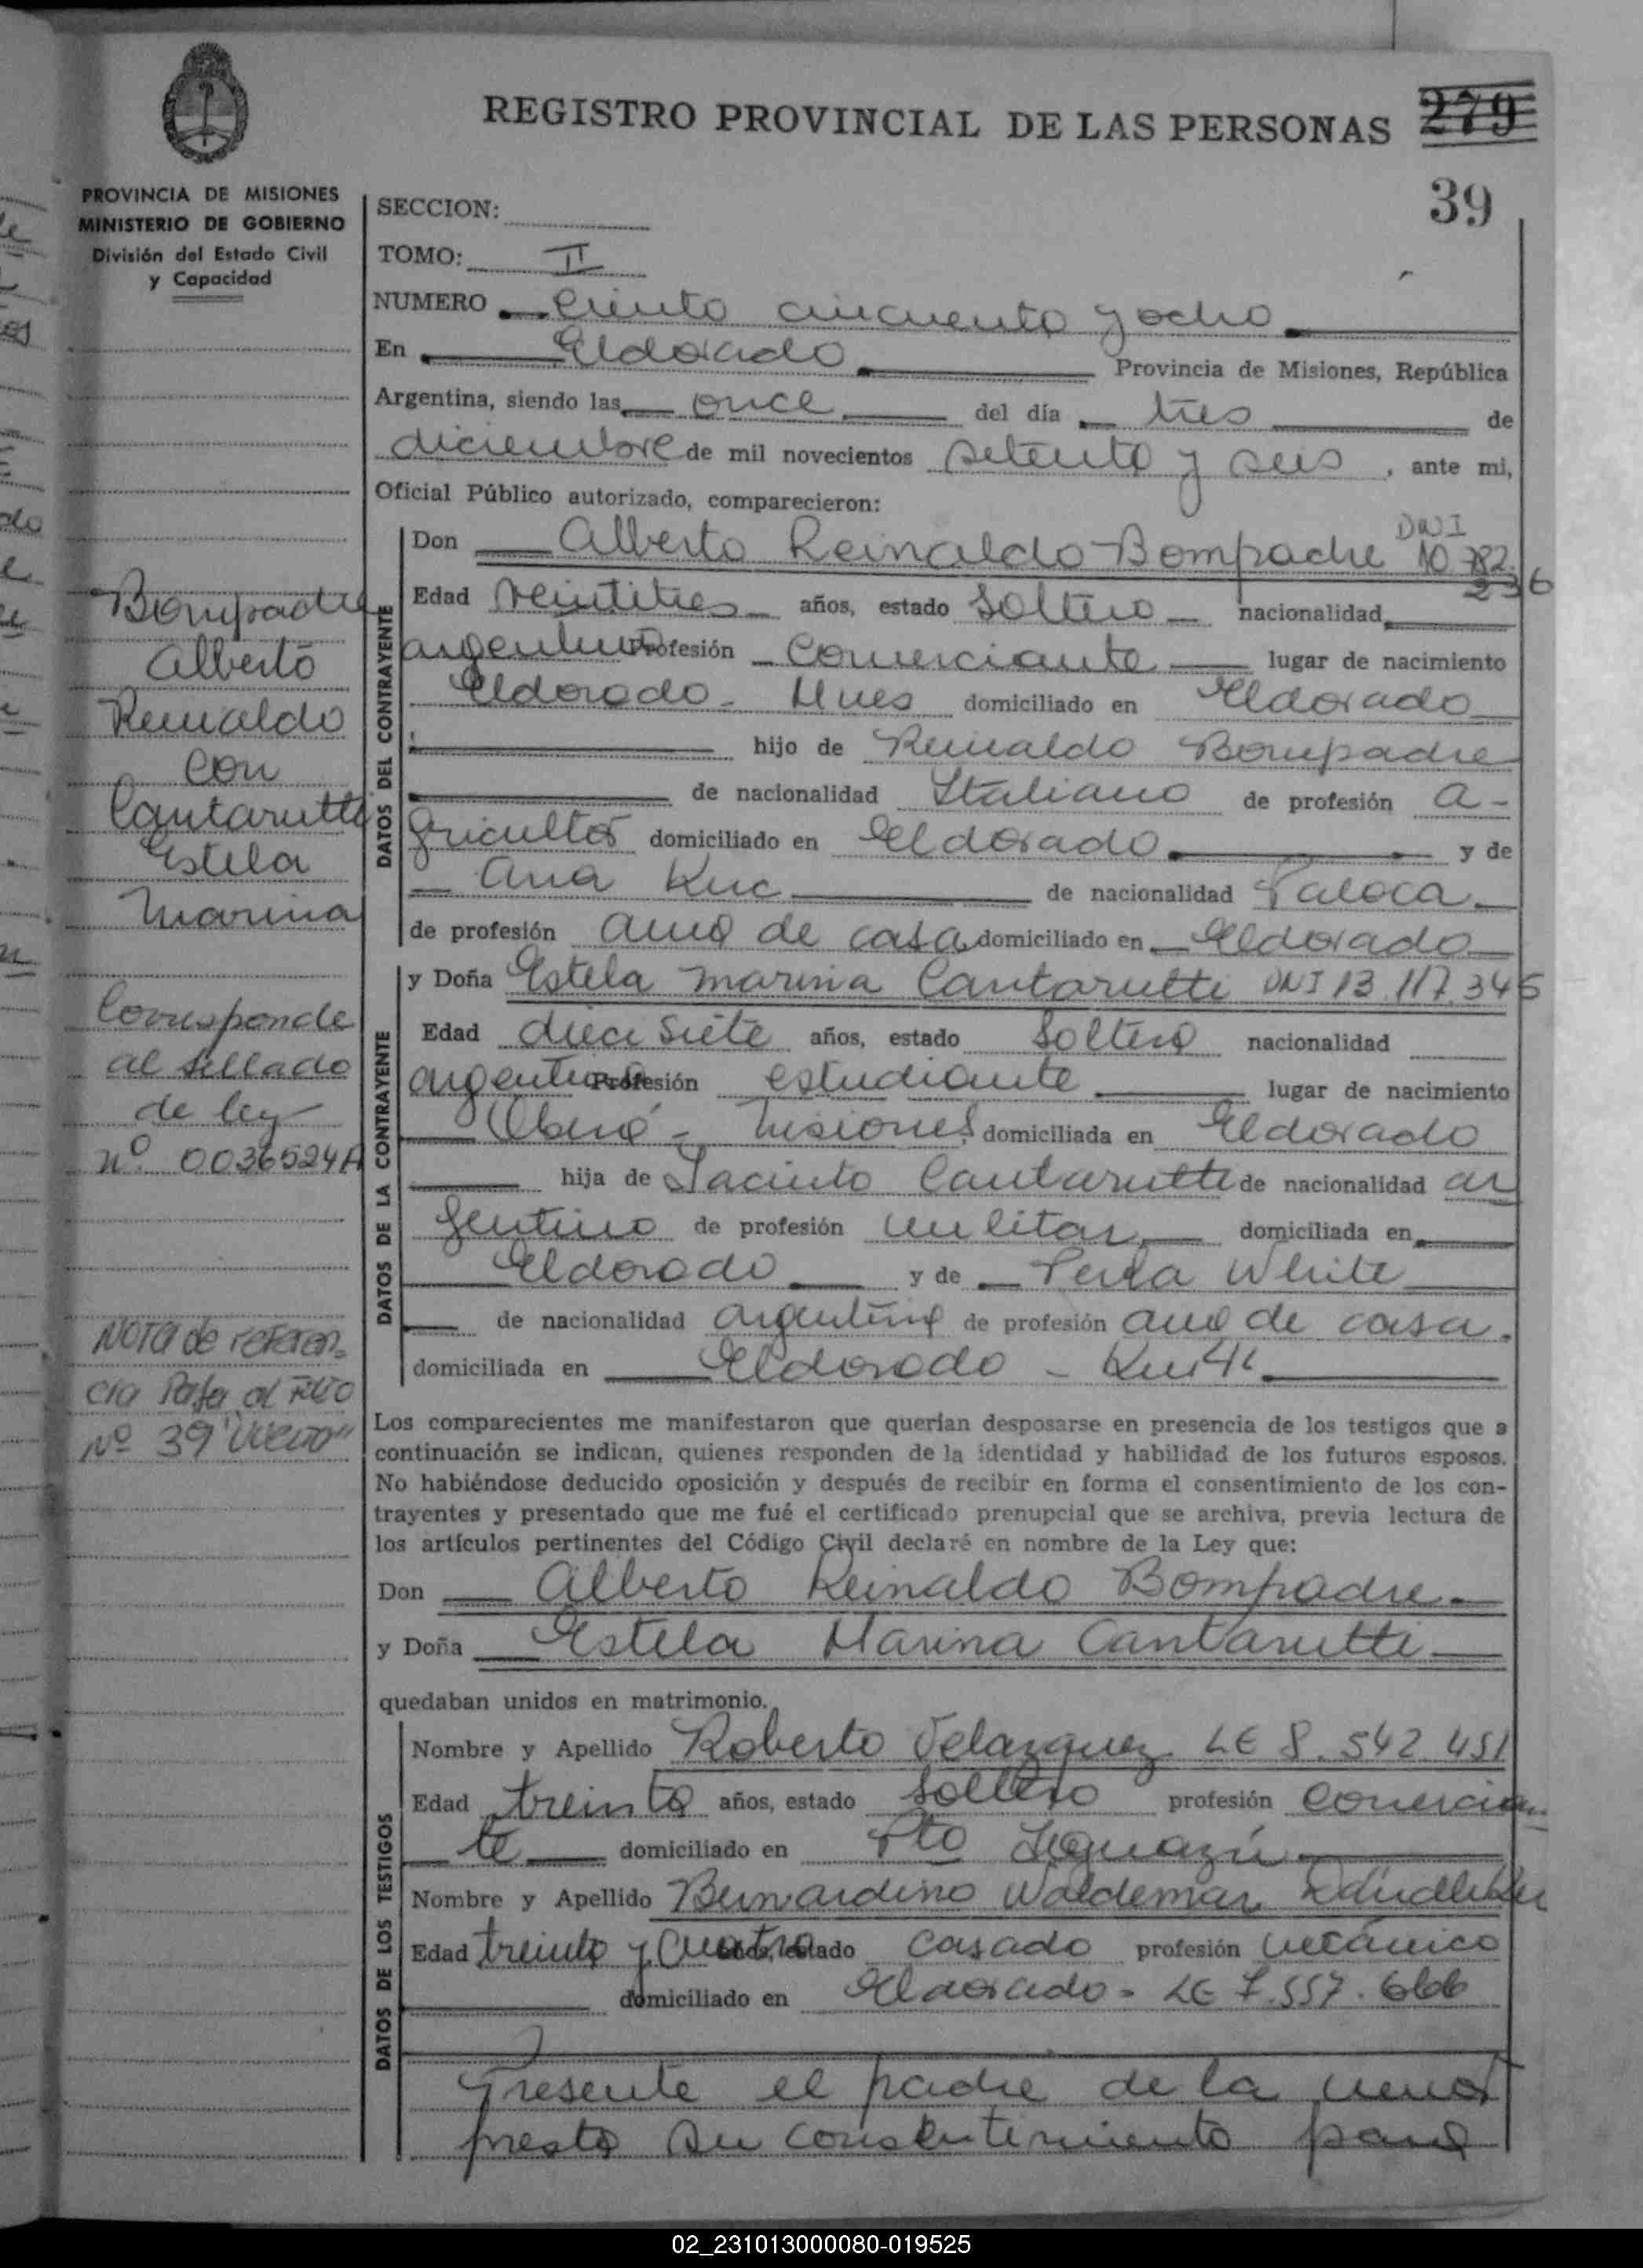 REGISTRO PROVINCIAL DE LAS PERSONAS 279
39
PROVINCIA DE MISIONES
MINISTERIO DE GOBIERNO
División del Estado Civil
y Capacidad
SECCION:
TOMO: II
NUMERO Ciento cincuenta y ocho
En Eldorado Provincia de Misiones, República
Argentina, siendo las once del día tres de
diciembre de mil novecientos setenta y seis, ante mi,
Oficial Público autorizado, comparecieron:
Bompadre
Alberto
Reinaldo
con
Cantarutti
Estela
Marina
Corresponde
al sellado
de ley
nº 0036524A
Nota de referen-
cia Pasa al Folio
Nº 39 "vuelto"
DATOS DEL CONTRAYENTE
Don Alberto Reinaldo Bompadre DNI 10.782.236
Edad veintitres años, estado soltero nacionalidad
argentino Profesión Comerciante lugar de nacimiento
Eldorado - Mnes domiciliado en Eldorado
hijo de Reinaldo Bompadre
de nacionalidad Italiano de profesión a-
gricultor domiciliado en Eldorado y de
Ana Kuc de nacionalidad Polaca
de profesión ama de casa domiciliado en Eldorado
DATOS DE LA CONTRAYENTE
y Doña Estela Marina Cantarutti DNI 13.117.345
Edad dieci siete años, estado soltera nacionalidad
argentina Profesión estudiante lugar de nacimiento
Oberá - Misiones domiciliada en Eldorado
hija de Jacinto Cantarutti de nacionalidad ar
gentino de profesión militar domiciliada en
Eldorado y de Perla White
de nacionalidad argentina de profesión ama de casa.
domiciliada en Eldorado -
Los comparecientes me manifestaron que querían desposarse en presencia de los testigos que a
continuación se indican, quienes responden de la identidad y habilidad de los futuros esposos.
No habiéndose deducido oposición y después de recibir en forma el consentimiento de los con-
trayentes y presentado que me fué el certificado prenupcial que se archiva, previa lectura de
los artículos pertinentes del Código Civil declaré en nombre de la Ley que:
Don Alberto Reinaldo Bompadre
y Doña Estela Marina Cantarutti
quedaban unidos en matrimonio.
DATOS DE LOS TESTIGOS
Nombre y Apellido Roberto Velazquez LE 8.542.451
Edad treinta años, estado soltero profesión comercian
te domiciliado en Pto Iguazú
Nombre y Apellido Bernardino Waldemar
Edad treinta y cuatro años, estado casado profesión mecánico
domiciliado en Eldorado - LE 7.557.666
Presente el padre de la menor
presta su consentimiento para
02_231013000080-019525